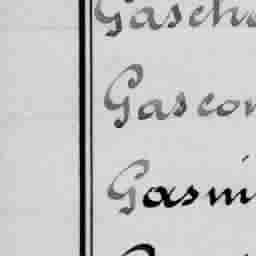 Gasch
Gascon
Gasni